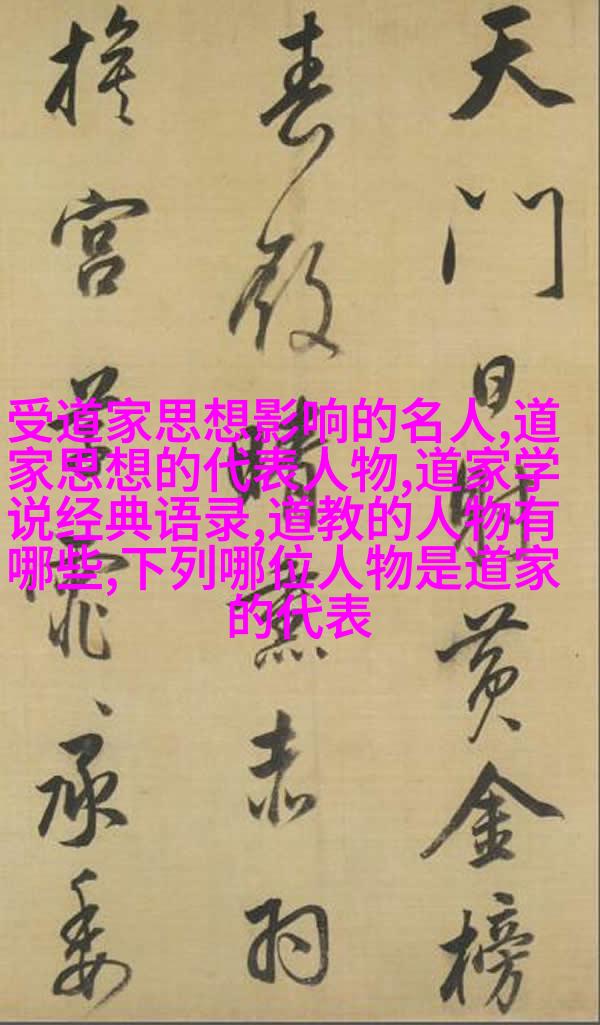 受道家思想影响的名人,道
家思想的代表人物,道家学
说经典语录,道教的人物有
哪些,下列哪位人物是道家
的代表
天門日射黃金榜
春殿晴熏赤羽
旗宮草霏〻承委